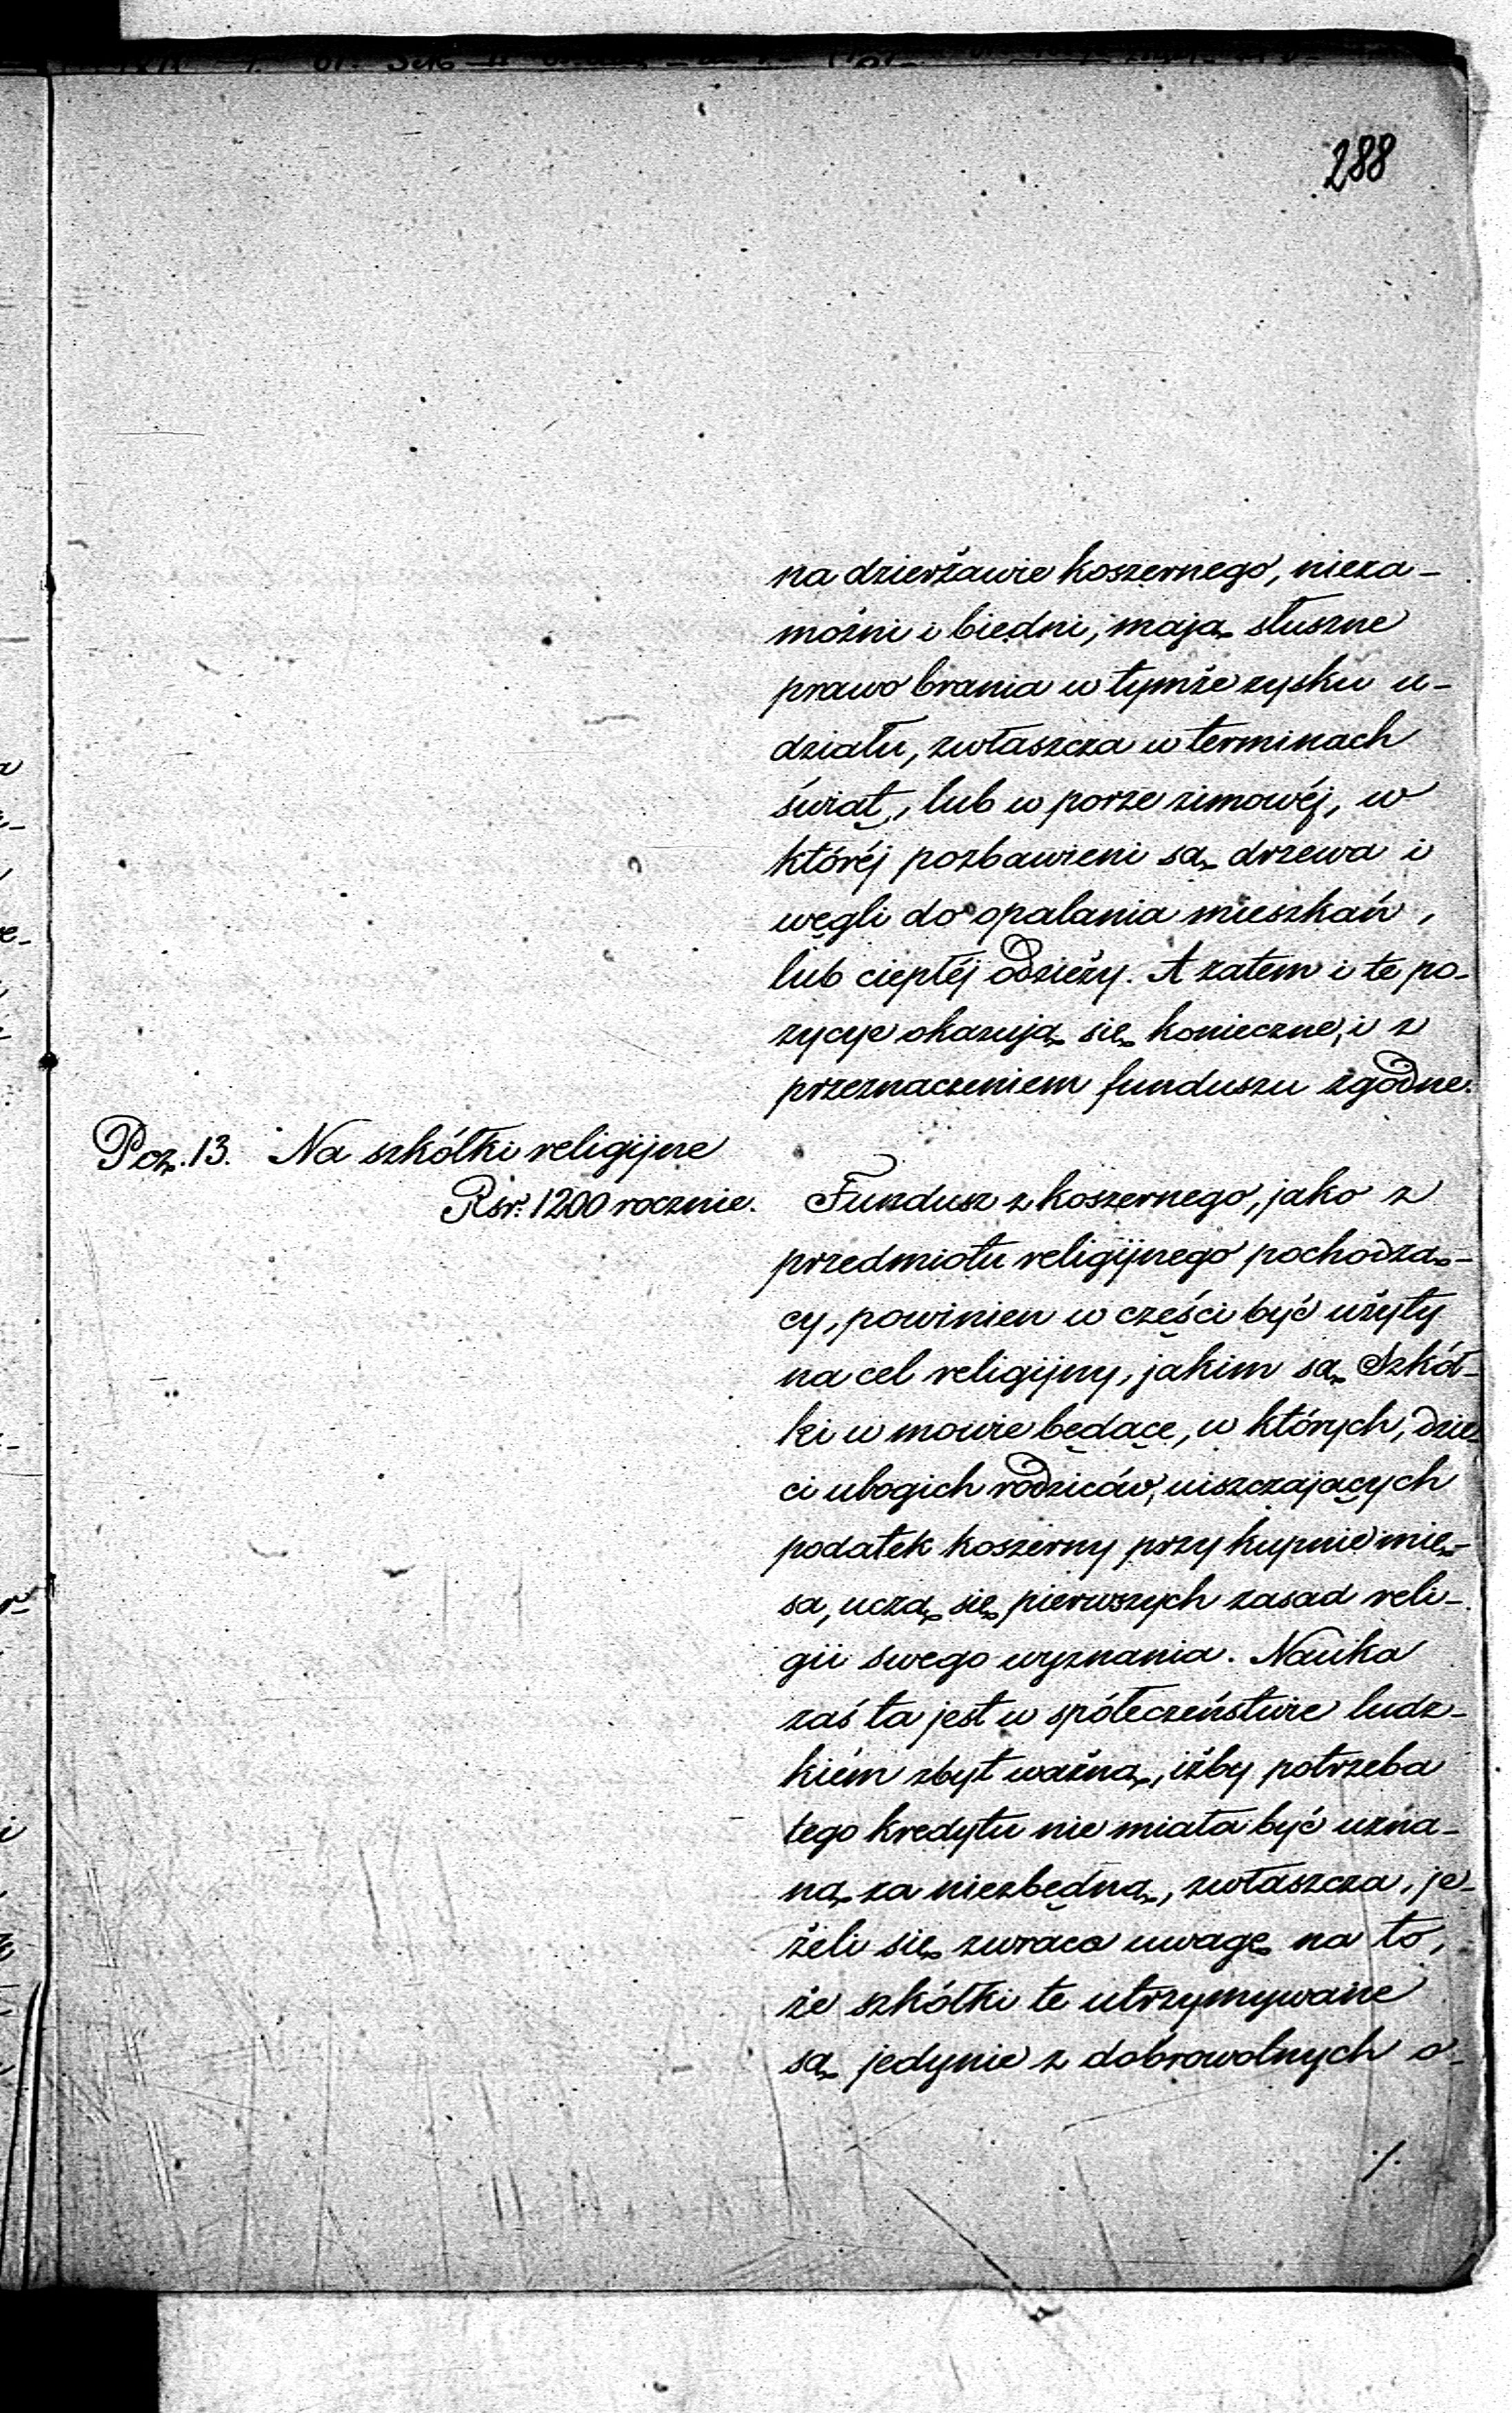 288
na dzierżawie koszernego, nieza-
możni i biedni, mają słuszne
prawo brania w tymże zysku u-
działu, zwłaszcza w terminach
świąt, lub w porze zimowéj, w
któréj pozbawieni są drzewa i
węgli do opalania mieszkań,
lub ciepłéj odzieży. A zatem i te po-
zycye okazują się konieczne, i z
przeznaczeniem funduszu zgodne.
Poz. 13. Na szkółki religijne
Rsr. 1200 rocznie.
Fundusz z koszernego, jako z
przedmiotu religijnego pochodzą-
cy, powinien w części być użyty
na cel religijny, jakim są Szkół-
ki w mowie będące, w których, dzie-
ci ubogich rodziców, uiszczających
podatek koszerny przy kupnie mię-
sa, uczą się pierwszych zasad reli-
gii swego wyznania. Nauka
zaś ta jest w spółeczeństwie ludz-
kiém zbyt ważną, iżby potrzeba
tego kredytu nie miała być uzna-
ną za niezbędną, zwłaszcza, je-
żeli się zwraca uwagę na to,
że szkółki te utrzymywane
są jedynie z dobrowolnych o-
./.